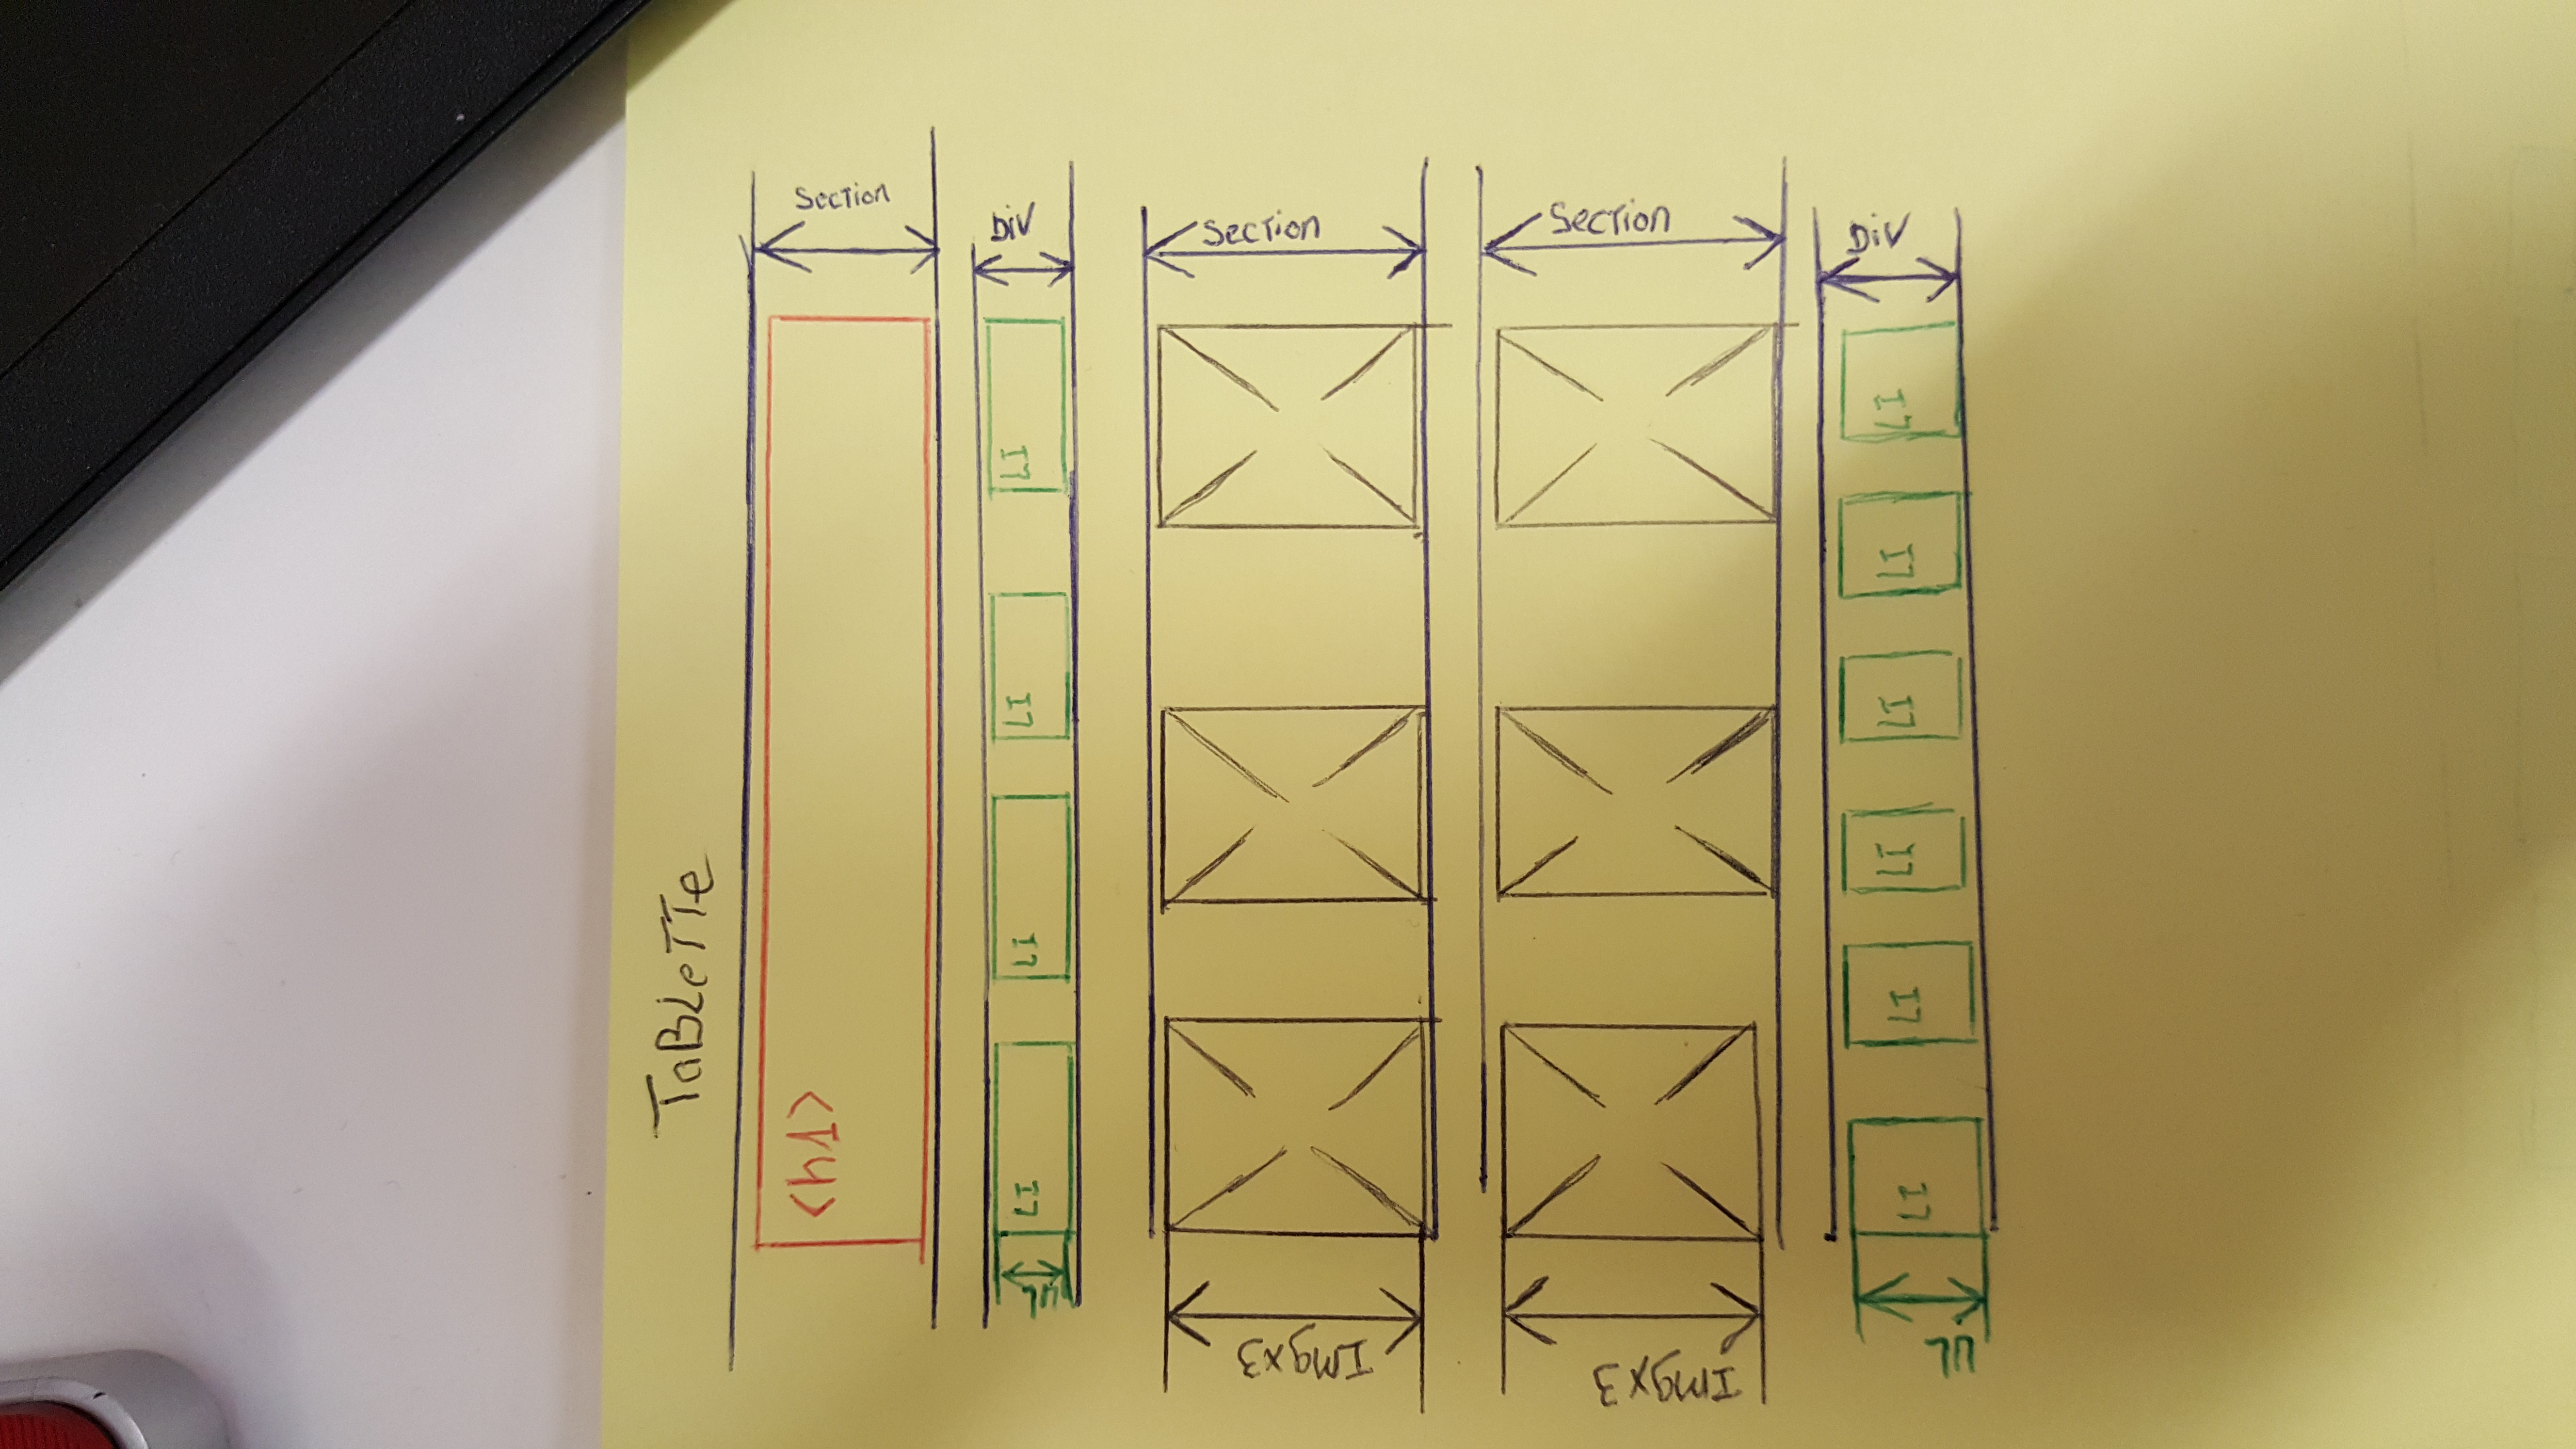 TaBLeTTe
<h1>
Section
UL
LI LI LI LI
Div
Imgx3
Section
Imgx3
Section
UL
LI LI LI LI LI LI
Div